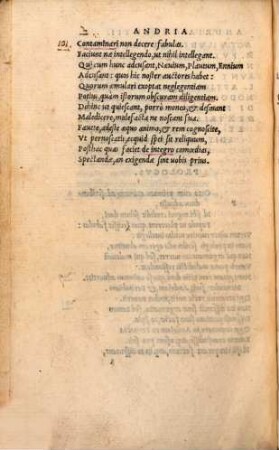 ANDRIA
Contaminari non decere fabulas.
Faciunt næ intellegendo, ut nihil intellegant.
Qui cum hunc accusant, Næuium, Plautum, Ennium
Accusant: quos hic noster auctores habet:
Quorum æmulari exoptat neglegentiam
Potius, quàm istorum obscuram diligentiam.
Dehinc ut quiescant, porro moneo, & desinant
Maledicere, malefacta ne noscant sua.
Fauete, adeste æquo animo, & rem cognoscite,
Vt pernoscatis, ecquid spei sit reliquum,
Posthac quas faciet de integro comœdias,
Spectandæ, an exigendæ sint uobis prius.